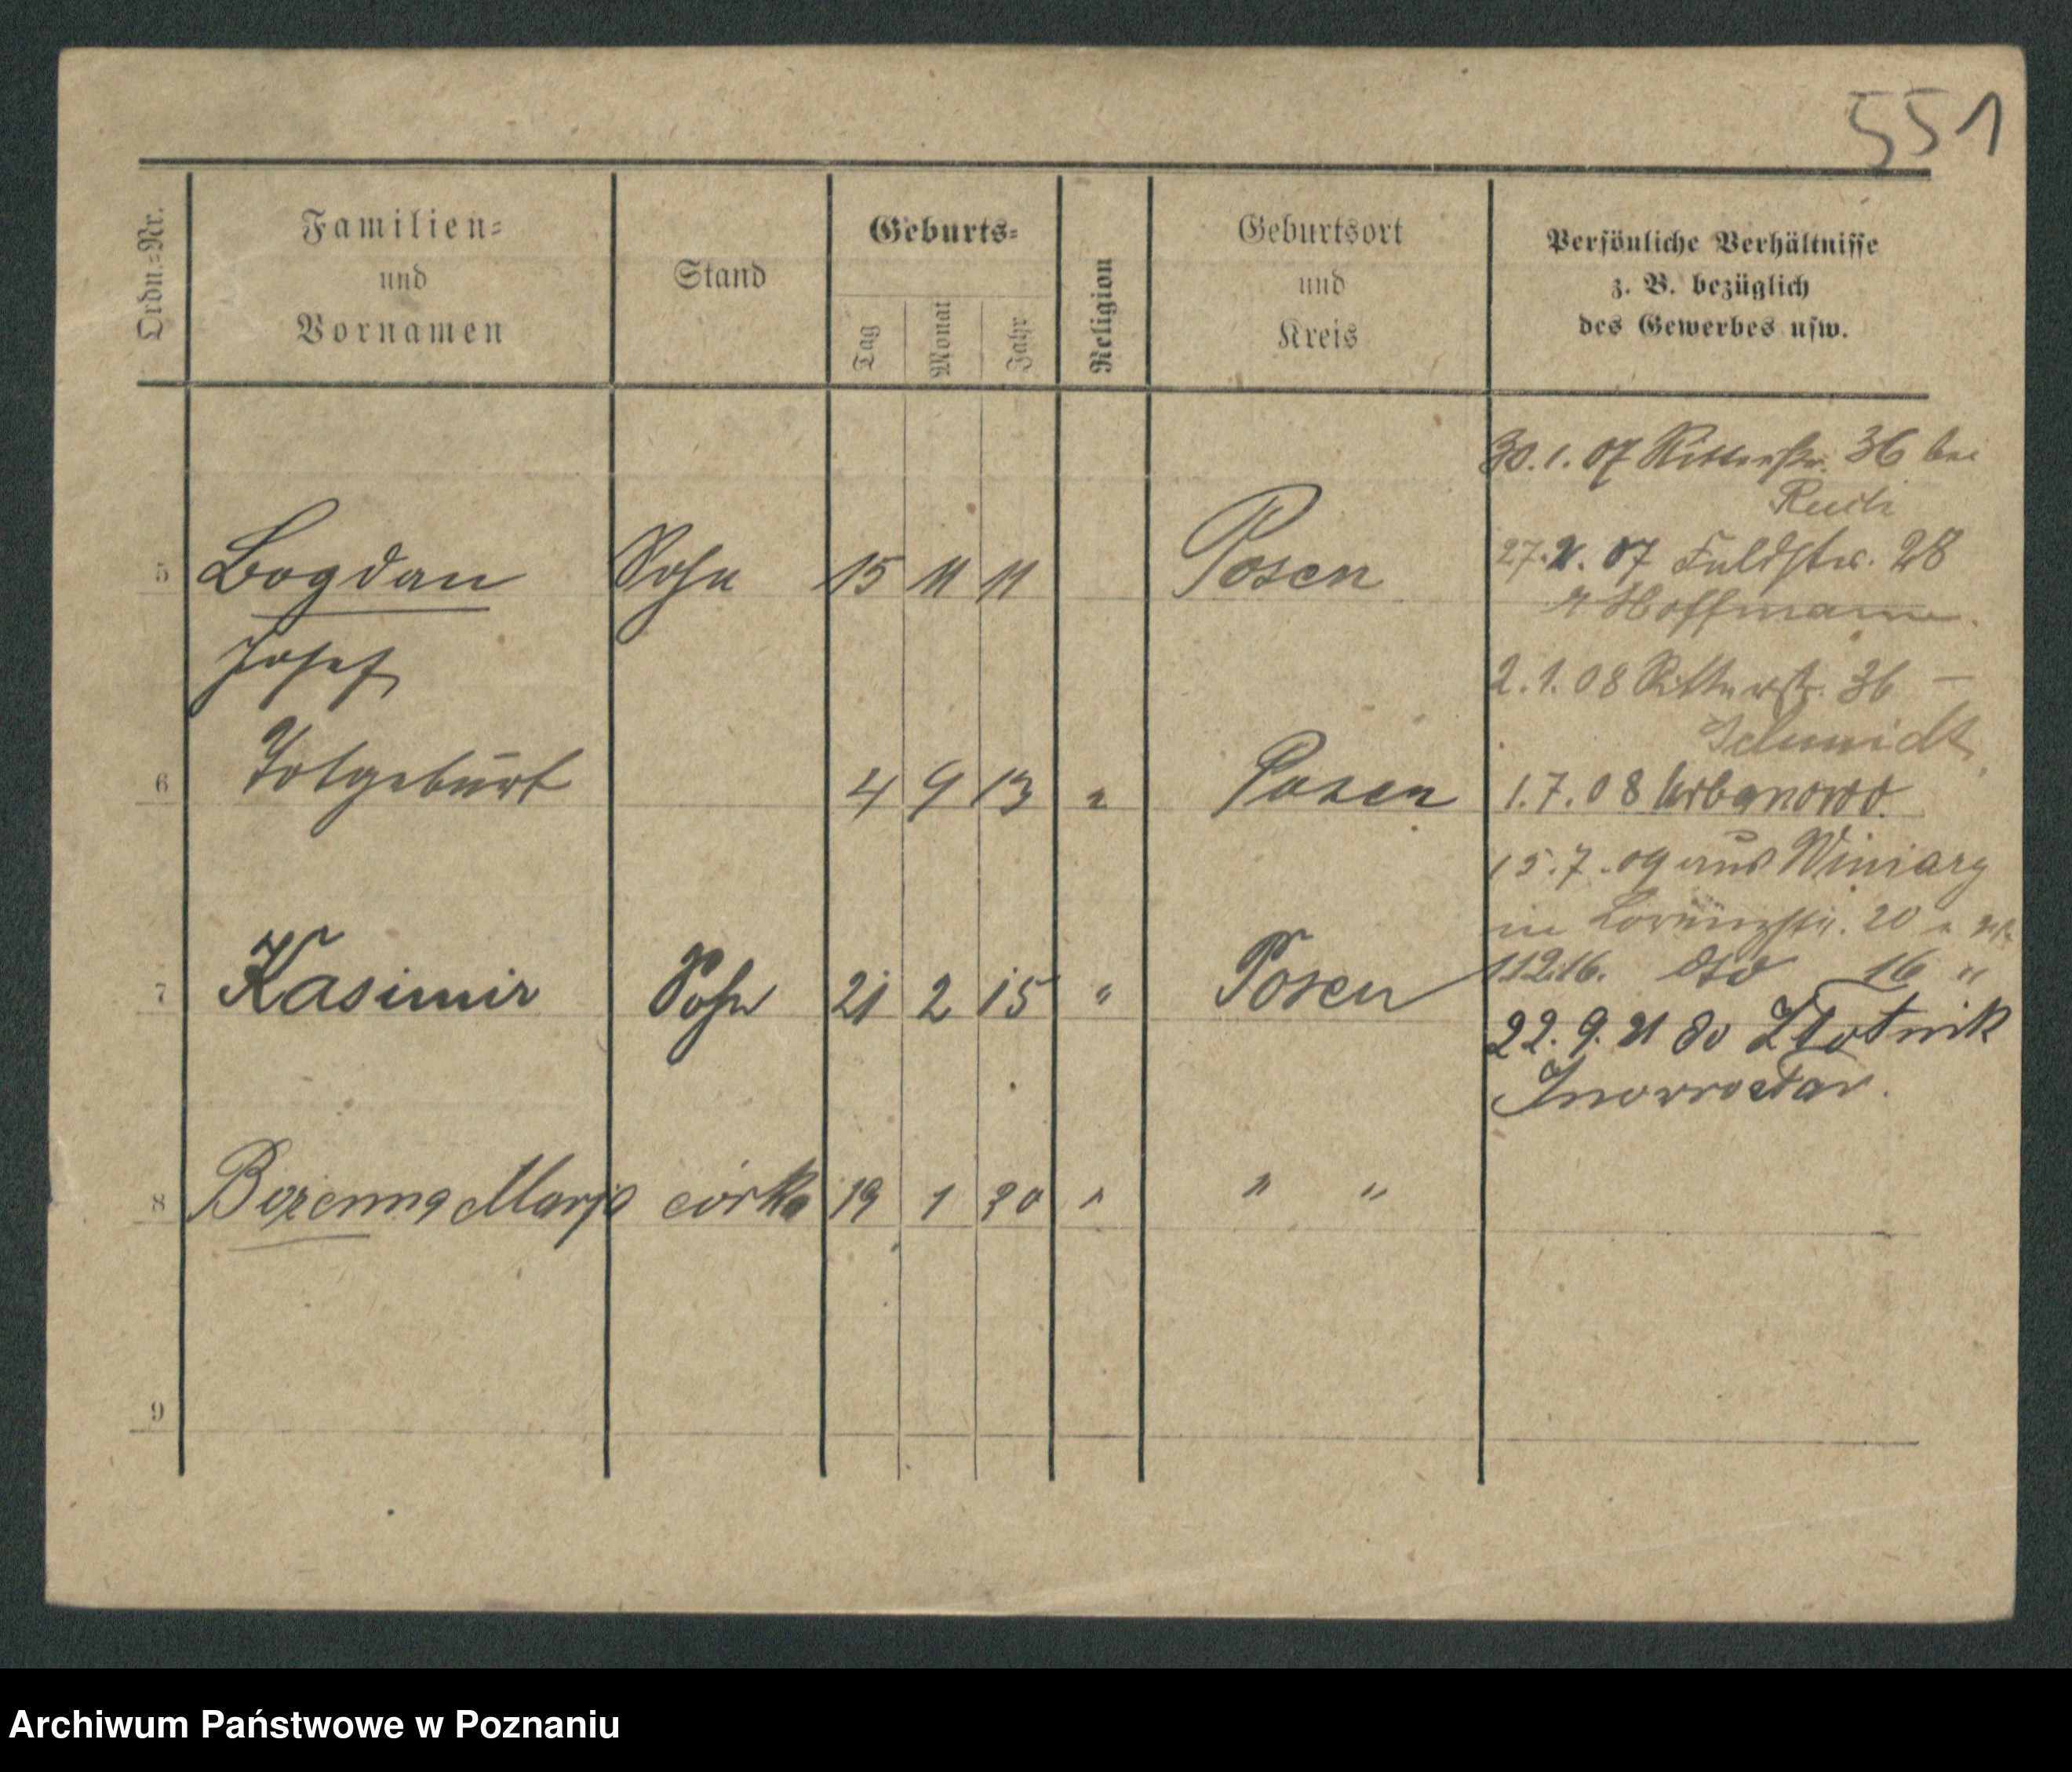 551
Ordn.=Nr.
Familien=
und
Vornamen
Stand
Geburts=
Tag
Monat
Jahr
Religion
Geburtsort
und
Kreis
Persönliche Verhältnisse
z. B. bezüglich
des Gewerbes usw.
30.1.07 Ritterstr. 36 bei
5 Bogdan Sohn 15 11 11 Posen
Josef
27. 07 Feldstr. 28
Hoffmann
2.1.08 Ritterstr. 36 –
Schmidt
6 Totgeburt 4 9 13 " Posen
1.7.08 Urbanowo
15.7.09 aus Winiary
in 20
7 Kasimir Sohn 21 2 15 " Posen
16 "
22.9.21 do Złotnik
Inowrocław.
8 Bożenna Marja córka 19 1 20 " " "
9
Archiwum Państwowe w Poznaniu